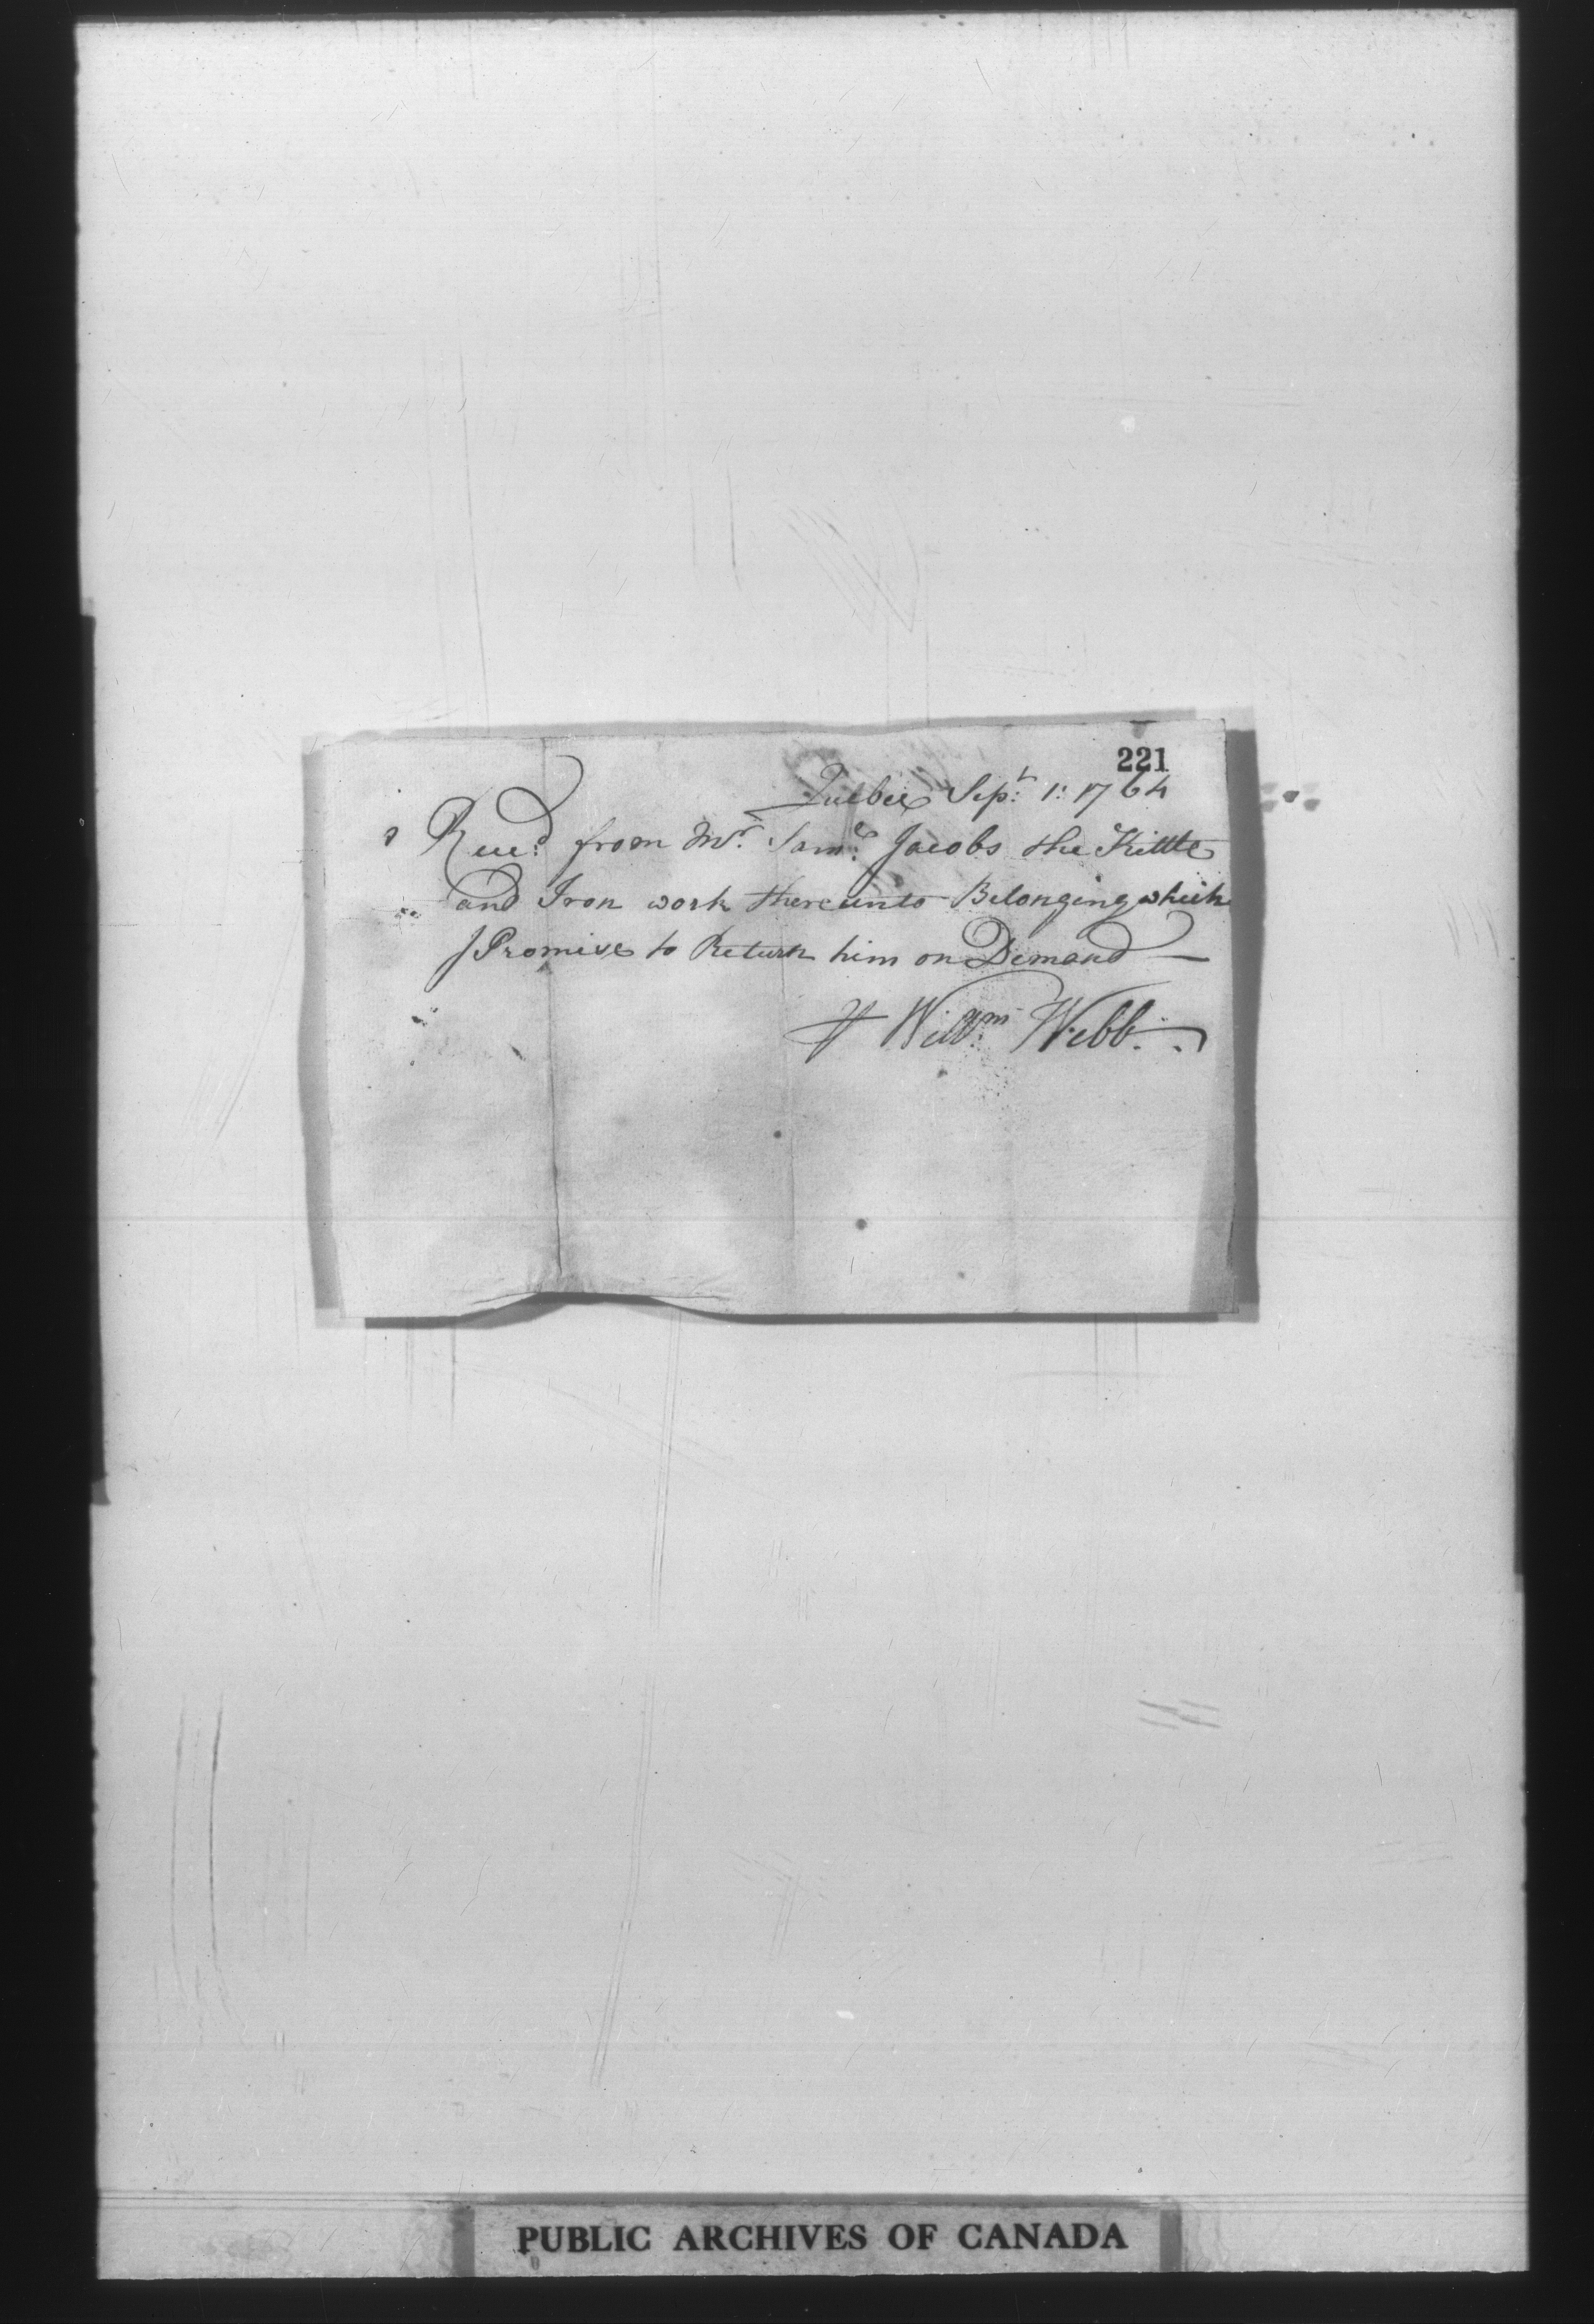 221
Quebec Sept: 1: 1764
Recd: from Mr. Saml: Jacobs the Kittle
and Iron work thereunto Belonging which
I Promise to Return him on Demand —
Willm: Webb.
PUBLIC ARCHIVES OF CANADA